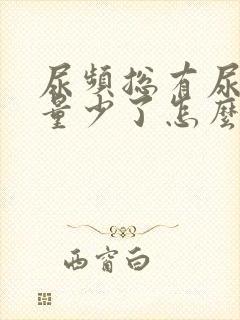 尿頻總有尿
量少了怎麼
西窗白